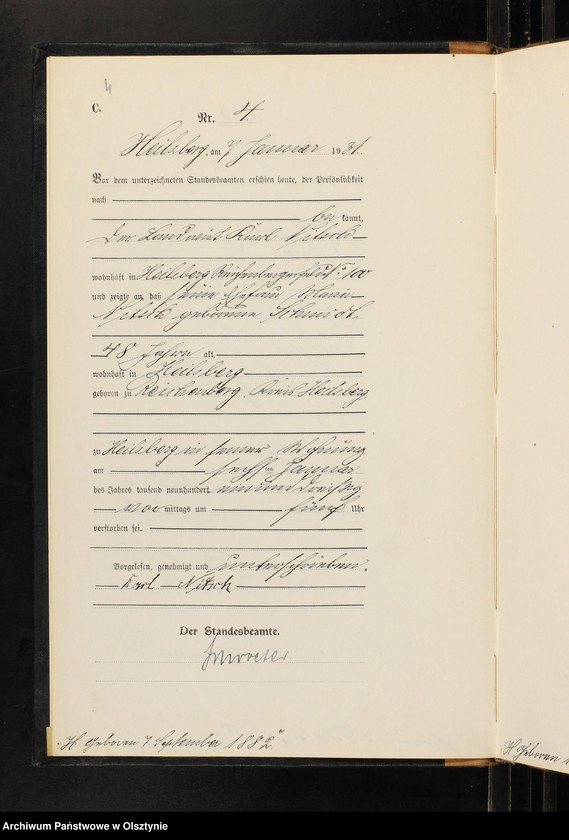 4
C.
Nr. 4
Heilsberg, am 7 Januar 1931.
Vor dem unterzeichneten Standesbeamten erschien heute, der Persönlichkeit
nach
be kannt,
Der Landwirt Karl Nitsch
wohnhaft in Heilsberg Reichenbergerstr N: 100
und zeigte an, daß seine Ehefrau Maria
Nitsch geborene Schmidt
48 Jahre alt,
wohnhaft in Heilsberg
geboren zu Reichenberg Kreis Heilsberg
zu Heilsberg in seiner Wohnung
am sechsten Januar
des Jahres tausend neunhundert einunddreißig
vor mittags um fünf Uhr
verstorben sei.
Vorgelesen, genehmigt und unterschrieben.
Karl Nitsch
Der Standesbeamte.
"H. geboren 7 September 1882"
H. geboren
Archiwum Państwowe w Olsztynie